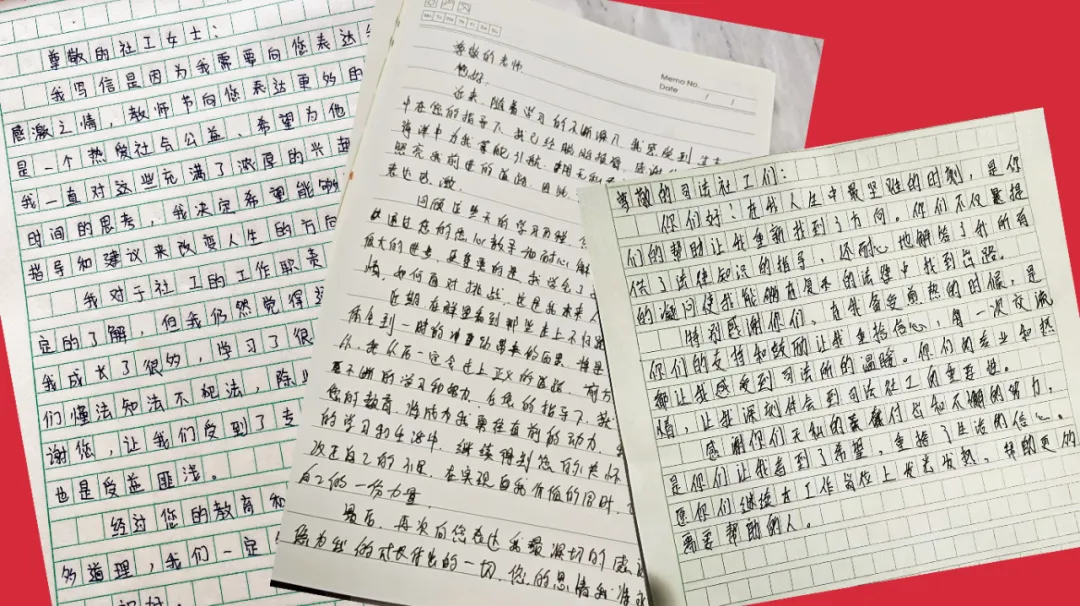 尊敬的社工女士：
我写信是因为我需要向您表达
感激之情，教师节向您表达更多的
是一个热爱社会公益、希望为他
我一直对这些充满了浓厚的兴趣
时间的思考，我决定希望能够
指导和建议来改变人生的方向
我对于社工的工作职责
定的了解，但我仍然觉得
我成长了很多，学习了很
们懂法知法不犯法，除
谢您，让我们受到了专
也是受益匪浅。
经过您的教育和
多道理，我们一定
祝好。
Memo No.
Date / /
Mo Tu We Th Fr Sa Su
尊敬的老师
您好
近来，随着学习的不断深入，我感受到
中在您的指导下，我已经
海洋中为我掌舵引航，
照亮我前进的道路，因此
表达感激。
回顾这些天的学习历程，
很大的进步，更重要的是，我学会了
情，如何面对挑战，这是我未来人
近期在群里看到那些走上不归路
体会到一时的冲动带来的后果，
从今后一定会过上正义的道路，前方
的学习和努力，在您的指导下，我
您的教育，将成为我勇往直前的动力，
的学习和生活中，继续得到您的关怀
改正自己的不足，在实现自我价值的同时，
自己的一份力量
最后，再次向您表达我最深切的感
您为我的成长付出的一切，您的恩情我将
尊敬的司法社工们：
你们好：在我人生中最坚难的时刻，是你
们的帮助让我重新找到了方向。你们不仅是提
供了法律知识的指导，还耐心地解答了我所有
的疑问使我能够在复杂的法律中找到答案。
特别感谢你们，在我备受煎热的时候，是
你们的支持和鼓励让我重拾信心，每一次交流
都让我感受到司法所的温暖。你们的专业和热
情，让我深刻体会到司法社工的重要性。
感谢你们无私的奉献付出和不懈的努力，
是你们让我看到了希望，重拾了生活的信心。
愿你们继续在工作岗位上发光发热，帮助更多的
需要帮助的人。